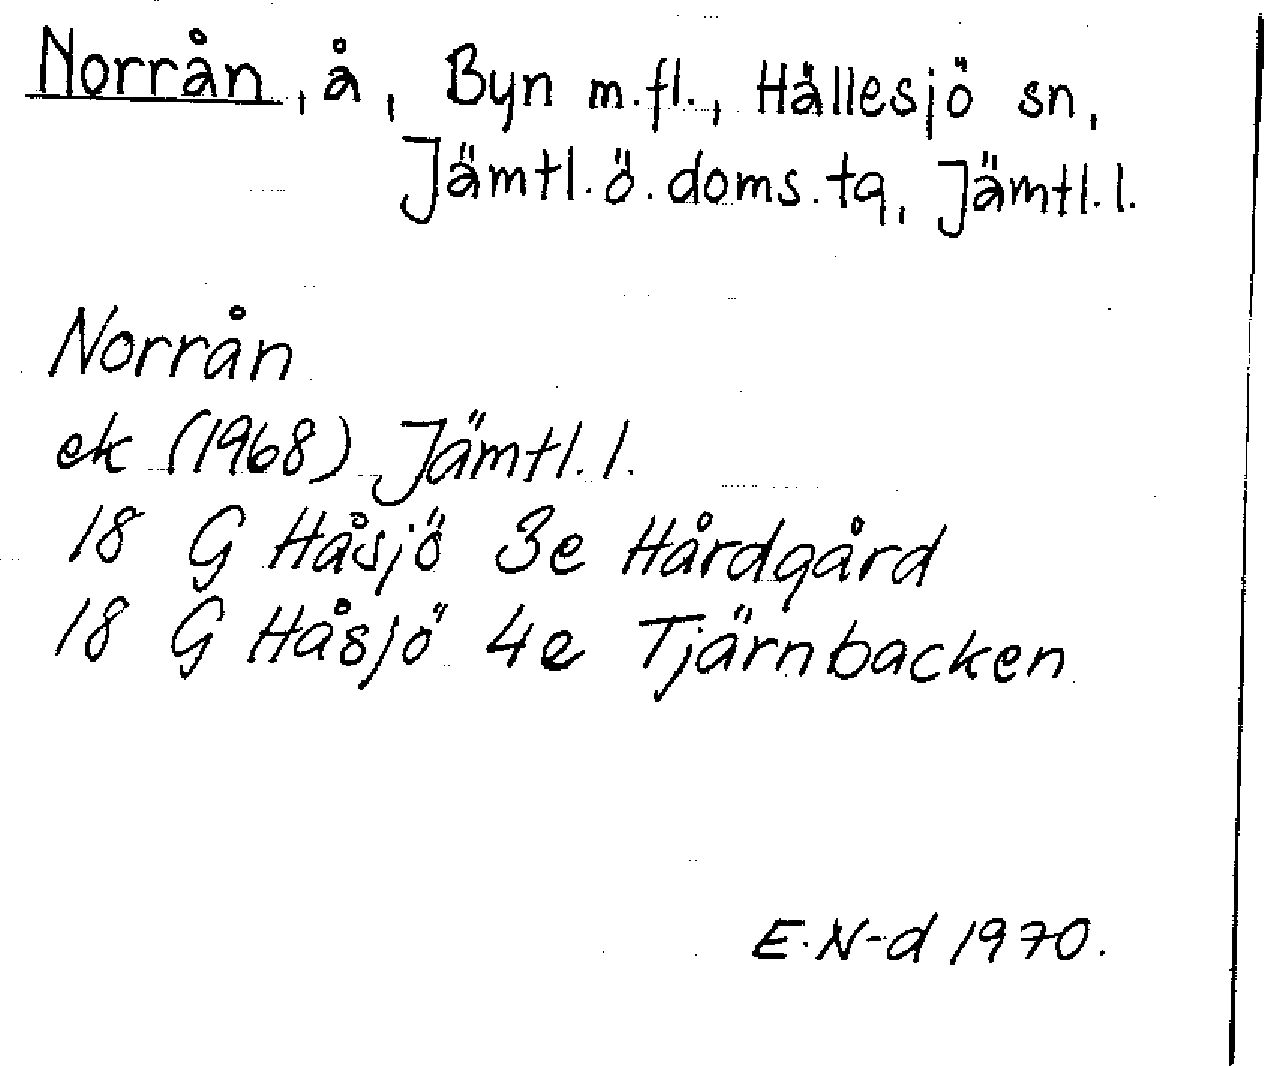 Norrån, å, Byn m.fl., Hällesjö sn,
Jämtl. ö. doms. tg, Jämtl. l.
Norrån
ek (1968) Jämtl. l.
18 G Håsjö 3e Hårdgård
18 G Håsjö 4e Tjärnbacken
E. N-d 1970.